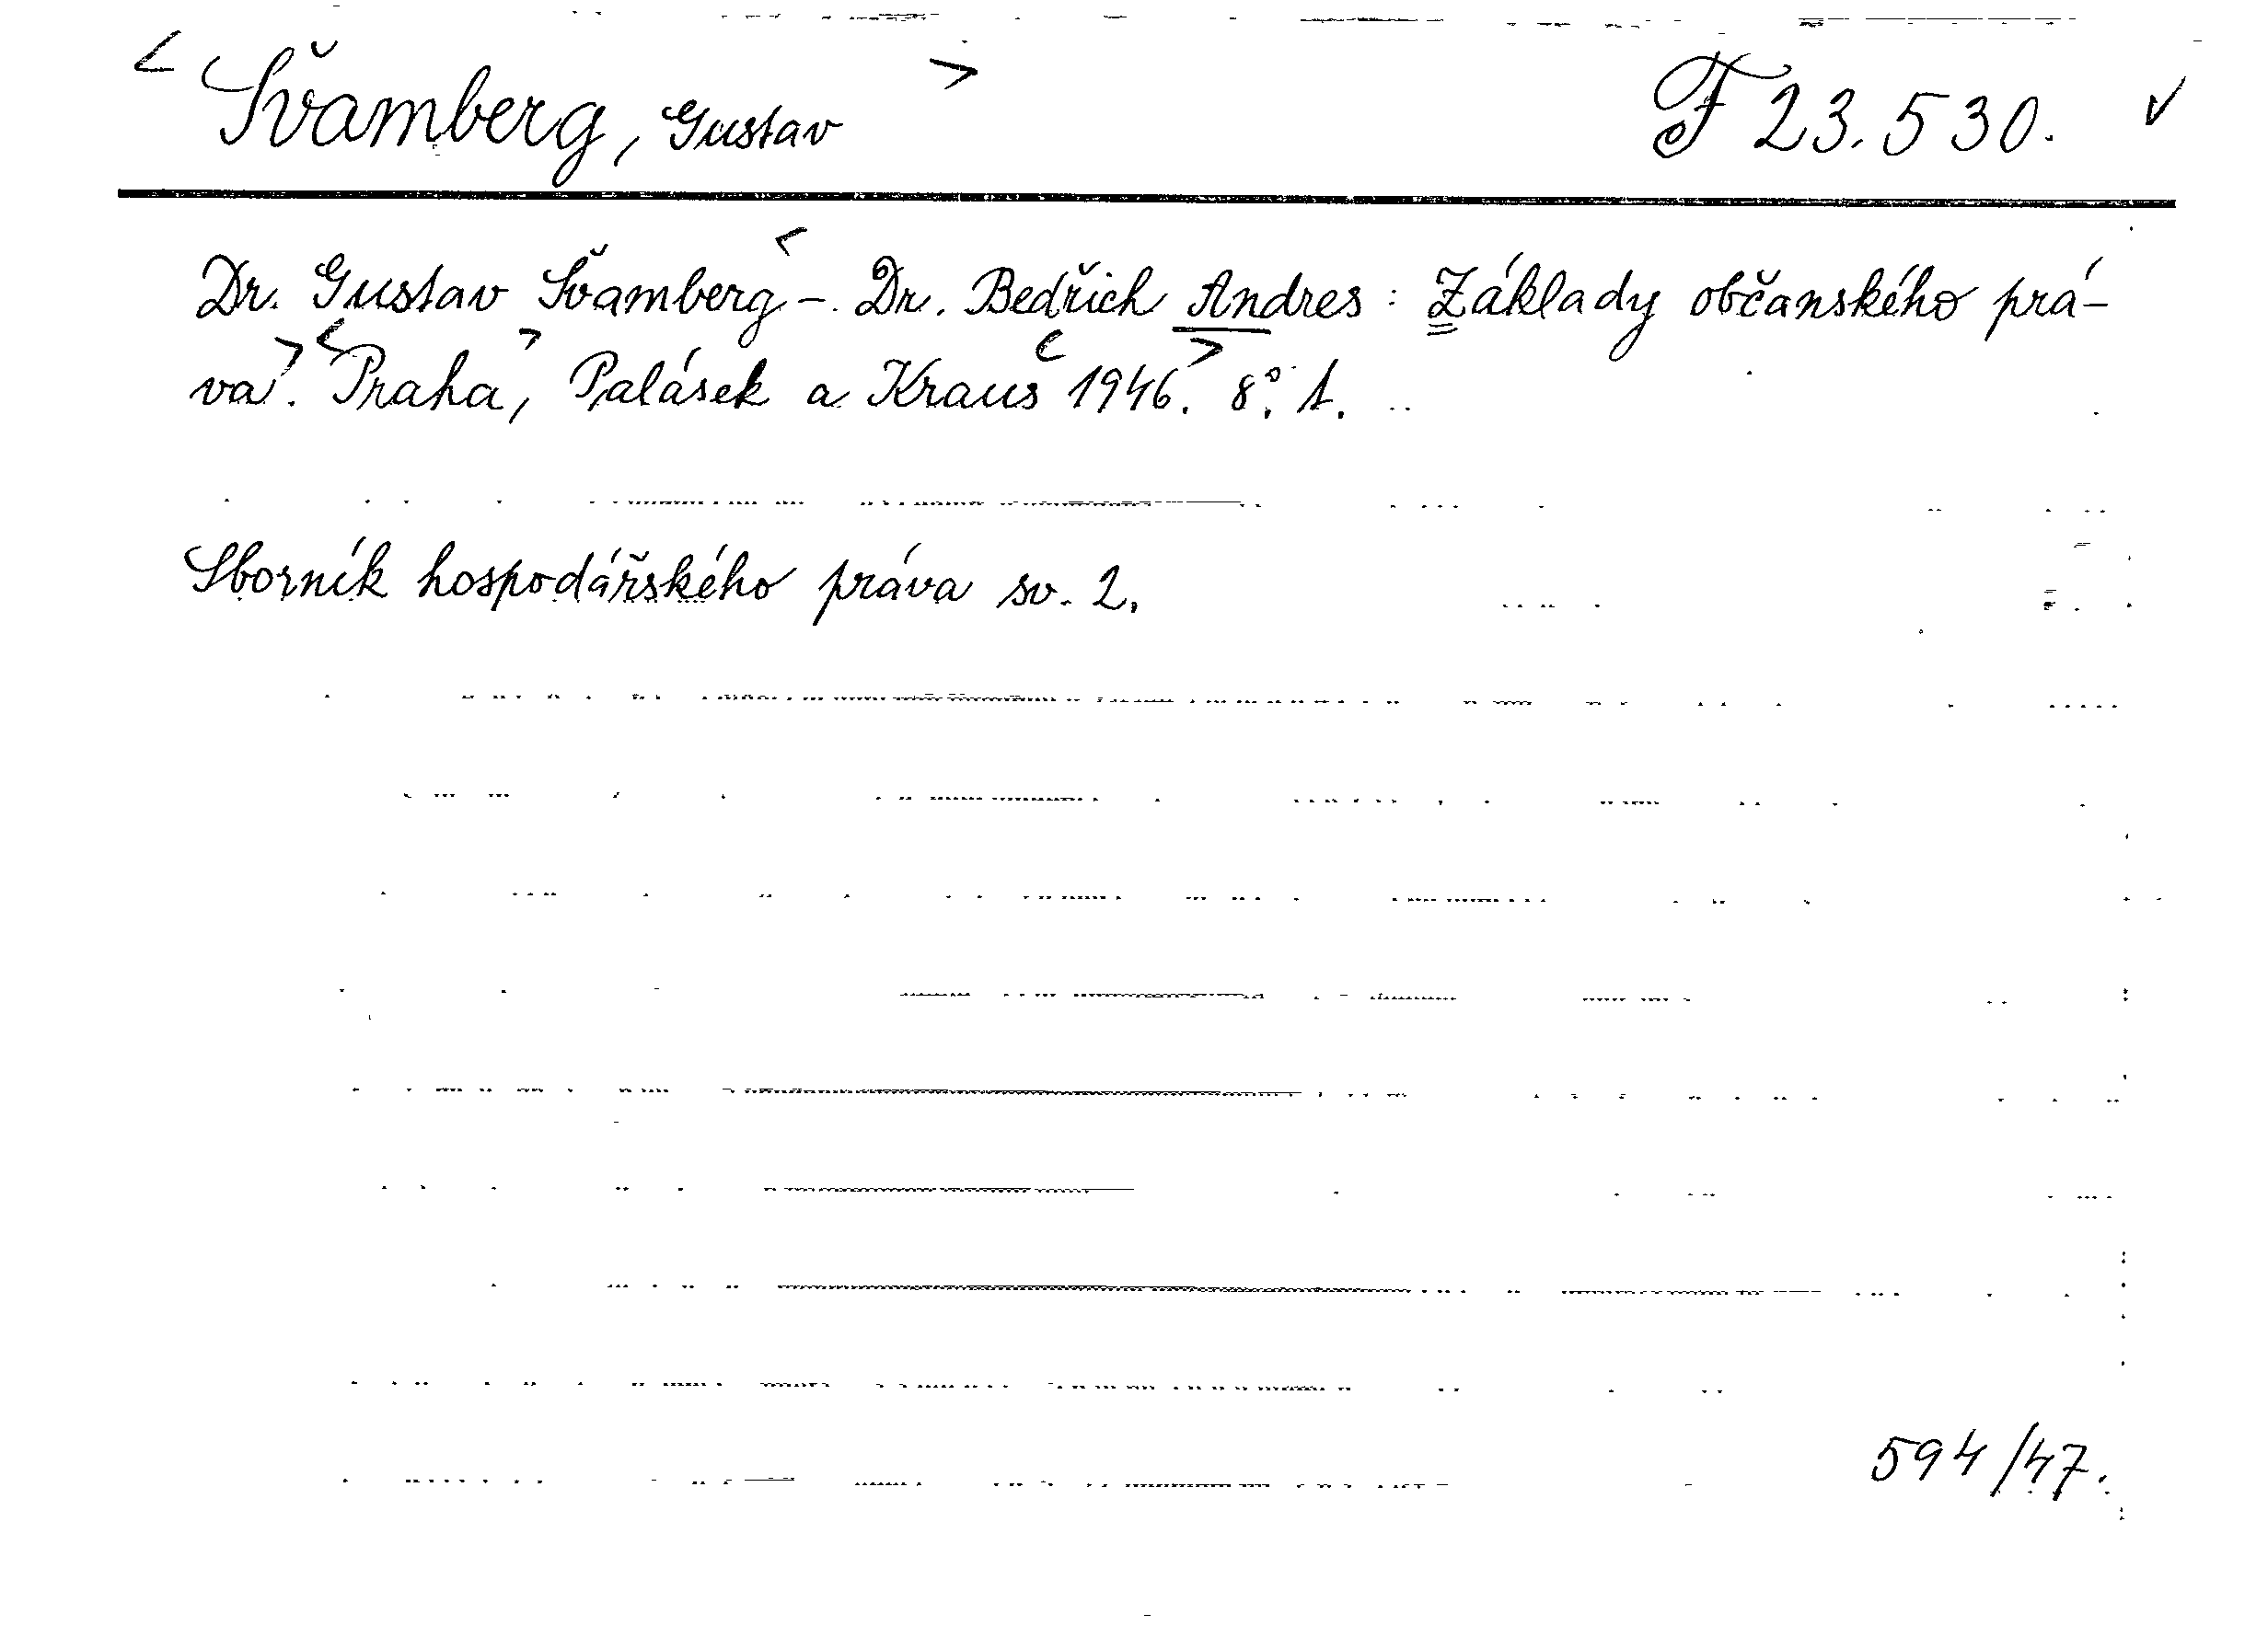 < Švamberg, Gustav > F 23.530. ✓
Dr. Gustav Švamberg -. < Dr. Bedřich Andres : Základy občanského prá-
va >. < Praha >, Palásek a Kraus < 1946. > 8°. 1.
Sborník hospodářského práva sv. 2.
594/47.